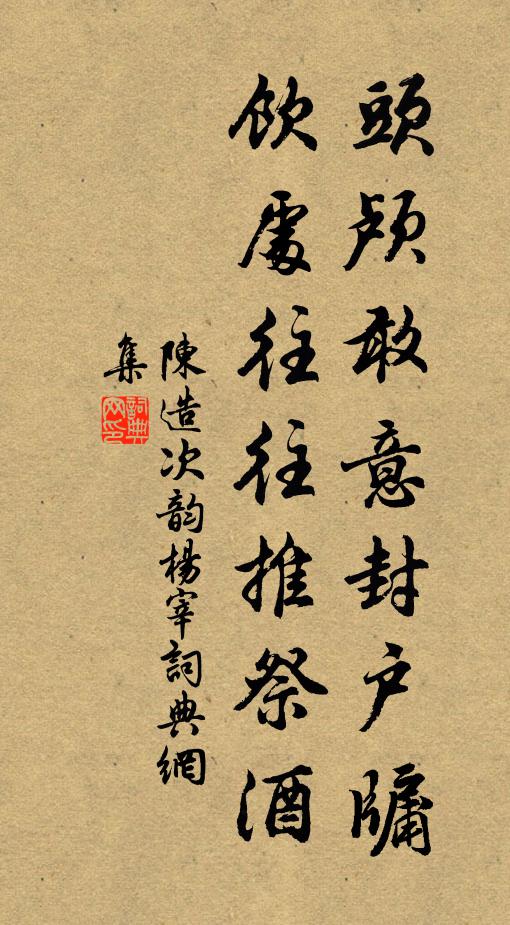 頭颅敢意封户牖
飲處往往推祭酒
陳造次韵楊宰詞典網
集
詞典
网印